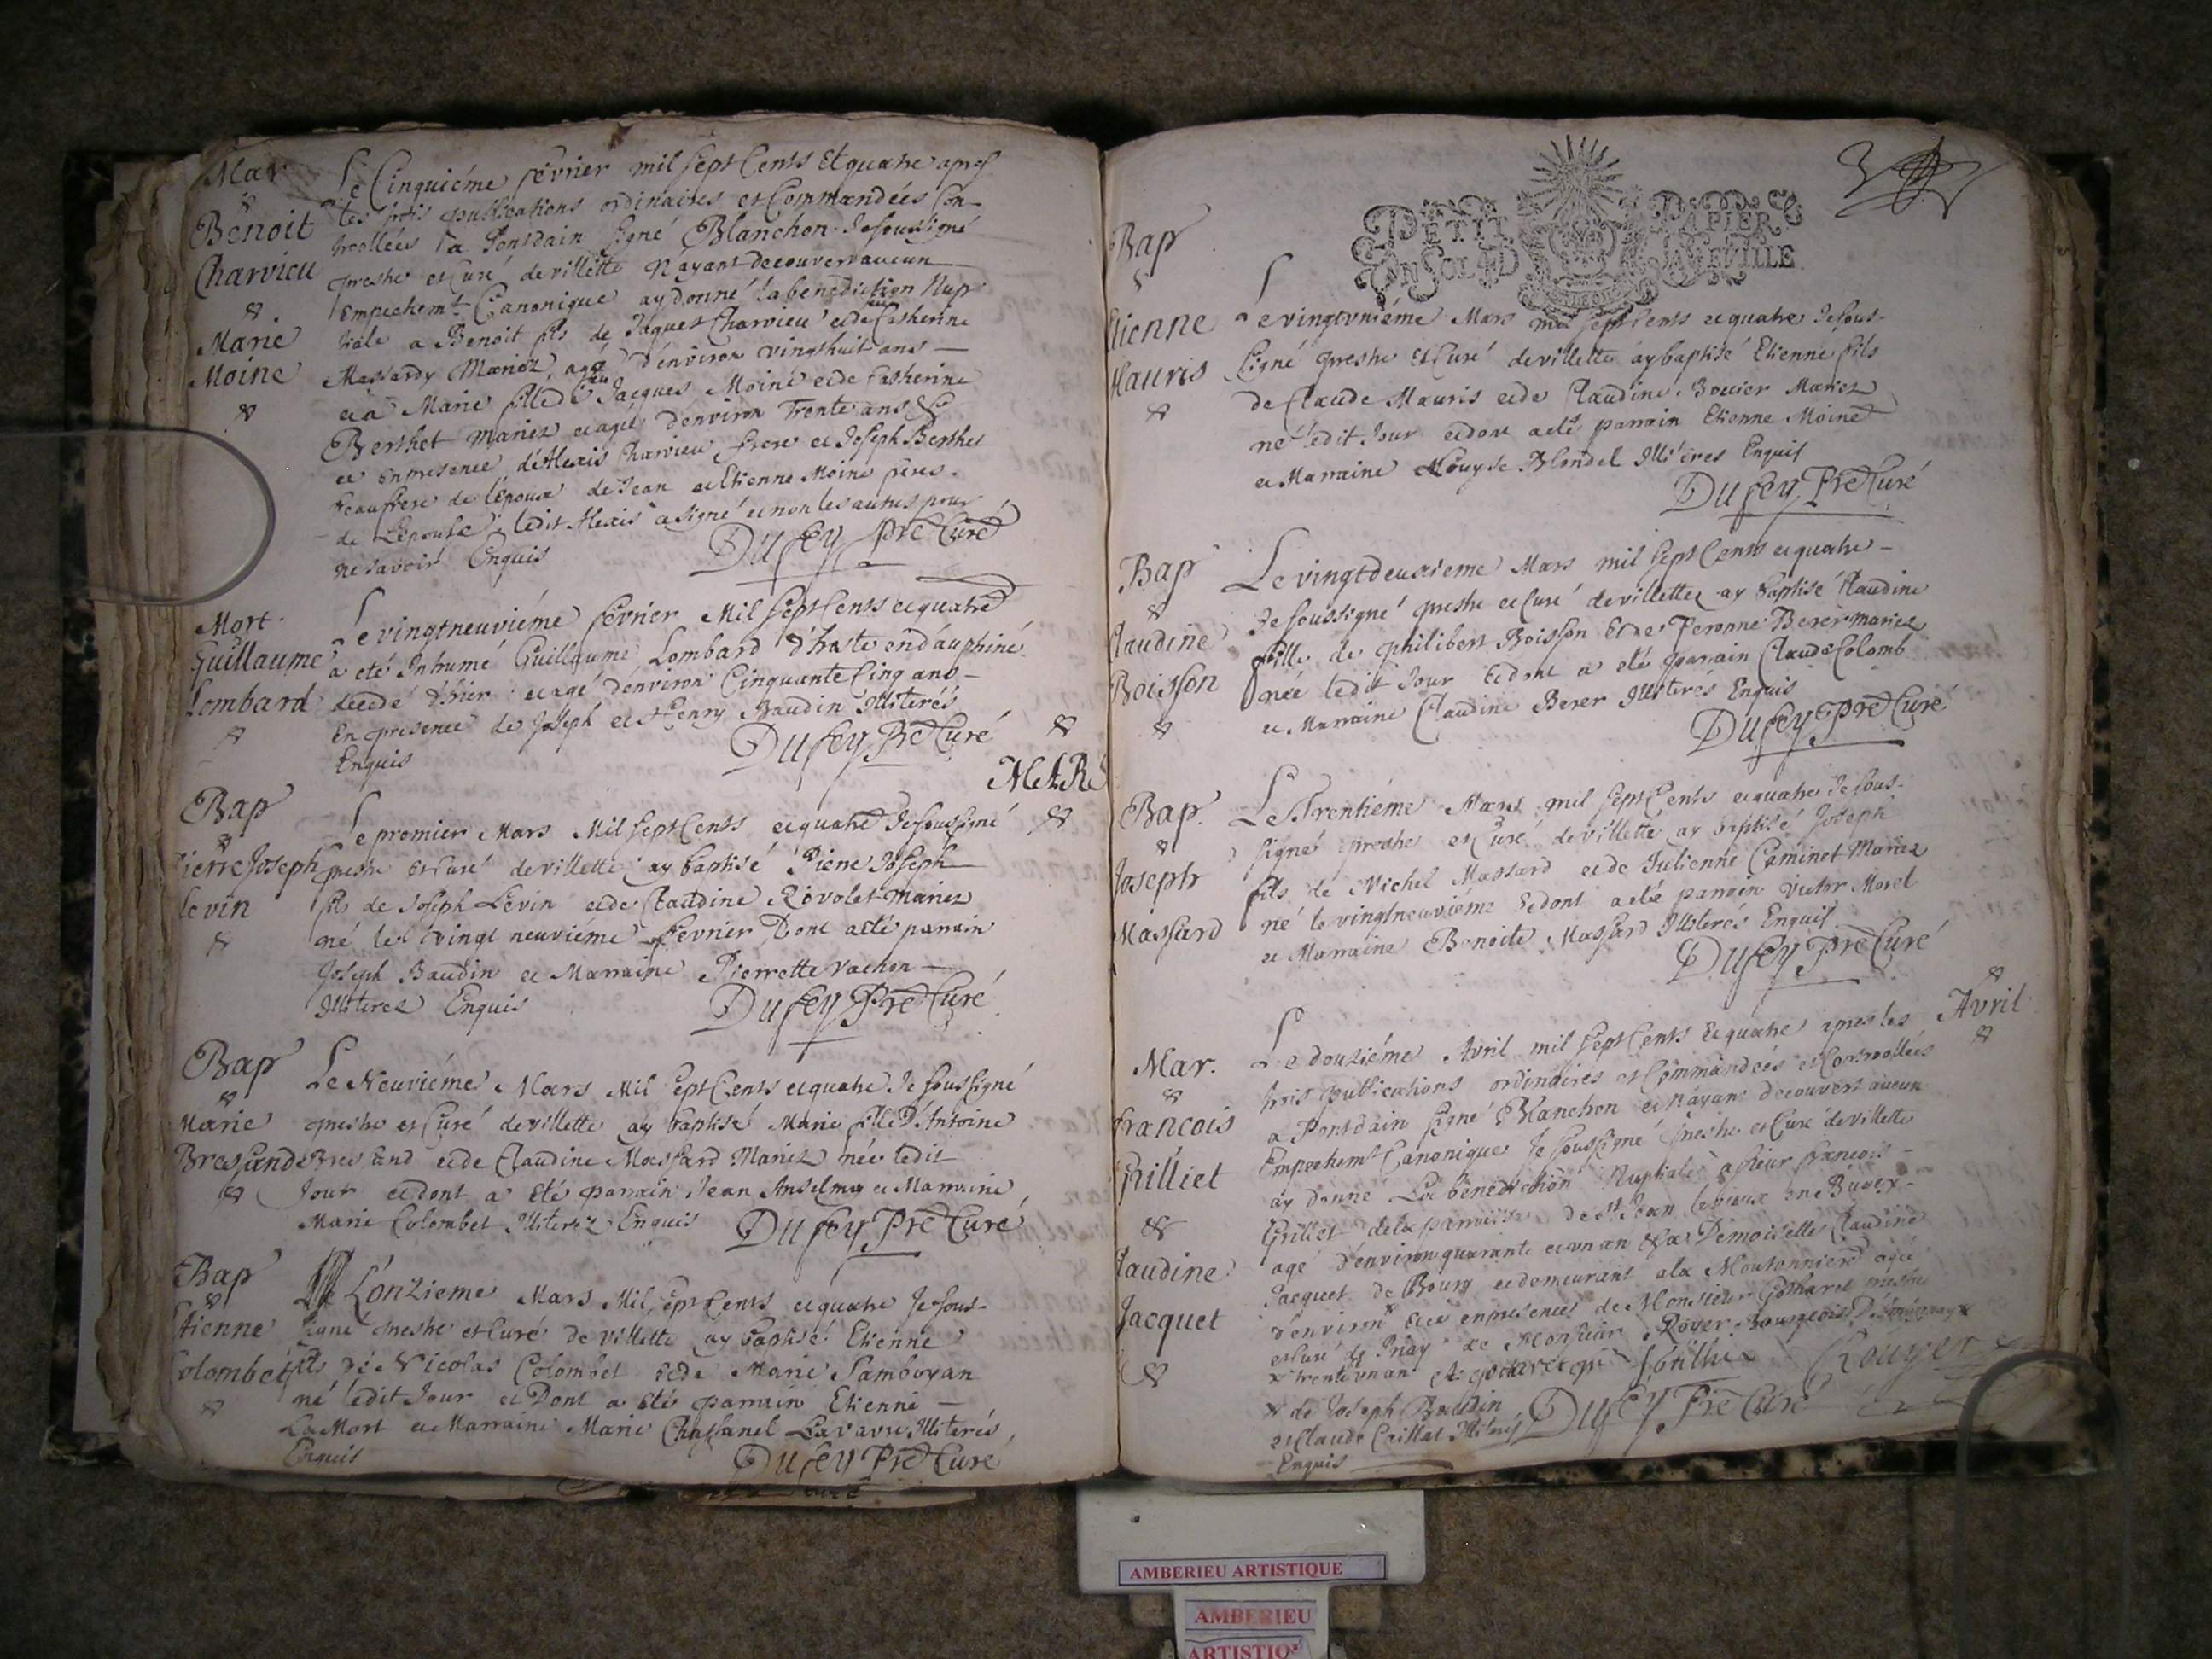 Mar
Benoit
Charvieu
Marie
Moine
Le Cinquiéme février mil sept Cents Et quatre apres
les trois publications ordinaires et Commandées Con-
troollées a Pontdain signé Blanchon Je soussigné
prestre et Curé de villette N'ayant decouvert aucun
Empechemt Canonique ay donné la benediction Nup-
tiale a Benoit fils de Jaques Charvieu et de Catherine
Massardy Mariez, agé d'environ vingthuit ans —
et a Marie fille de feu Jacques Moine et de Catherine
Berthet mariez et agée d'environ Trente ans &
et en presence d'Alexis Charvieu frere et Joseph Berthet
beaufrere de l'époux de Jean et Etienne Moine freres
de L'épouse, ledit Alexis a signé et non les autres pour
ne savoir Enquis
Dufey Pre Curé
Mort
Guillaume
Lombard
Le vingtneuviéme février Mil sept Cents et quatre
a eté Inhumé Guillaume Lombard en dauphiné
decedé d'hier et agé d'environ Cinquante Cinq ans —
En presence de Joseph et Henry Baudin Illiterés
Enquis
Dufey Pre Curé
MARS
Bap
Pierre Joseph
Levin
Le premier Mars Mil sept Cents et quatre Je soussigné
prestre et Curé de villette ay baptisé Pierre Joseph
fils de Joseph Levin et de Claudine Révolet Mariez
né le vingt neuviéme février, Dont a eté parrain
Joseph Baudin et Marraine Pierrette vachon —
Illiterez Enquis
Dufey Pre Curé
Bap
Marie
Bressande
Le Neuviéme Mars Mil Sept Cents et quatre Je soussigné
prestre et Curé de villette ay baptisé Marie fille D'Antoine
Bressand et de Claudine Massard Mariez née ledit
Jour et dont a eté parrain Jean Anselme et Marraine
Marie Colombet Illiterez Enquis
Dufey Pre Curé
Bap
Etienne
Colombet
L'onzieme Mars Mil Sept Cents et quatre Je sous-
signé prestre et Curé de villette ay baptisé Etienne
fils de Nicolas Colombet et de Marie Jamboyan
né ledit Jour et Dont a eté parrain Etienne —
La Mort et Marraine Marie Chassanel Illiterés
Enquis
Dufey Pre Curé
PETIT PAPIER
UN SOL 4 D LA FEUILLE
Bap
Etienne
Mauris
Le vingtuniéme Mars mil sept Cents et quatre Je sous-
signé prestre et Curé de villette ay baptisé Etienne fils
de Claude Mauris et de Claudine Bouvier Mariez
né ledit Jour et dont a eté parrain Etienne Moine
et Marraine Louyse Blondel Illiteres Enquis
Dufey Pre Curé
Bap
Claudine
Boisson
Le vingtdeuxieme Mars mil sept Cents et quatre —
Je soussigné prestre et Curé de villette ay baptisé Claudine
fille de philibert Boisson et de Peronne Berer mariez
née ledit Jour et dont a eté parrain Claude Colomb
et Marraine Claudine Berer Illiterés Enquis
Dufey Pre Curé
Bap.
Joseph
Massard
Le Trentiéme Mars mil sept Cents et quatre Je sous-
signé prestre et Curé de villette ay baptisé Joseph
fils de Michel Massard et de Julienne Caminet Mariez
né le vingtneuviéme et dont a eté parrain victor Morel
et Marraine Benoite Massard Illiterés Enquis
Dufey Pre Curé
Avril
Mar.
francois
Grilliet
Claudine
Jacquet
Le douziéme Avril mil sept Cents et quatre apres les
trois publications ordinaires et Commandées et Controollées
a Pontdain signé Blanchon et N'ayant decouvert aucun
Empechemt Canonique Je soussigné prestre et Curé de villette
ay donné La benediction Nuptiale a sieur francois —
Grilliet de la parroisse de St Jean le vieux en Bugey
agé d'environ quarante et un an & a Demoiselle Claudine
Jacquet de Bourg et demeurant a la Moutonniere agée
d'environ & en presence de Monsieur prestre
et Curé de Priay de Monsieur Royer Bourgeois
x trente un an
x de Joseph Baudin
et Claude Illiterés
Enquis
Rouyer
Dufey Pre Curé
AMBERIEU ARTISTIQUE
AMBERIEU
ARTISTIQ